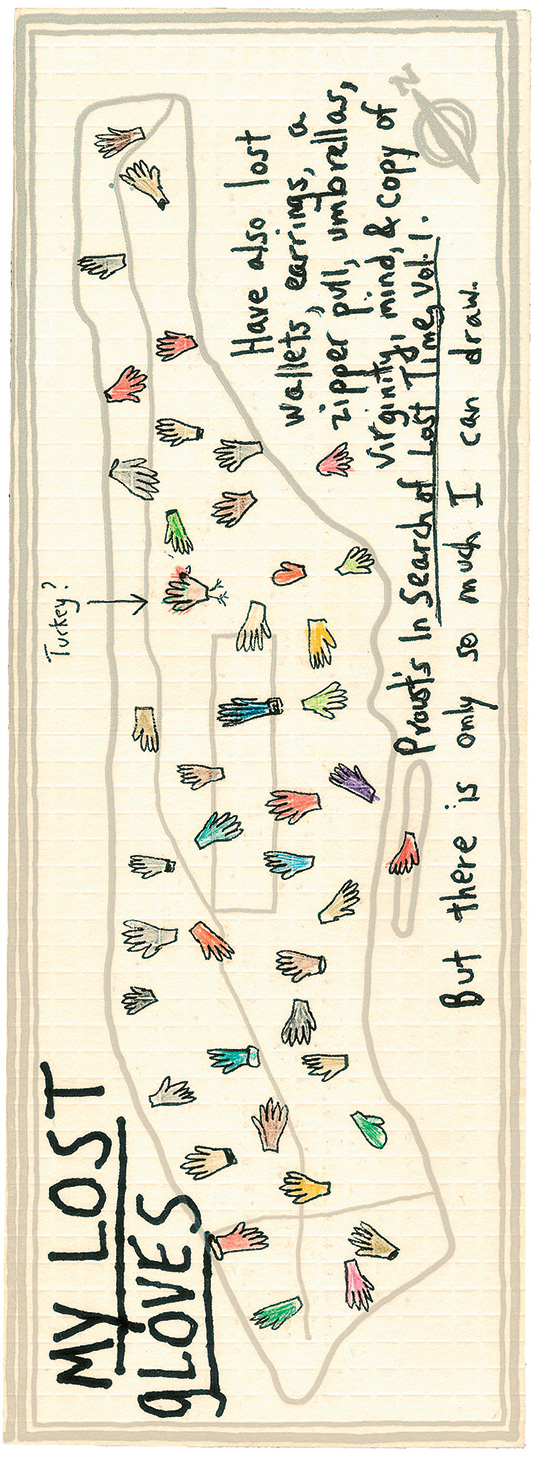 MY LOST
gLOVES
Turkey?
Have also lost
wallets, earrings, a
zipper pull, umbrellas,
virginity, mind, & copy of
Proust's In Search of Lost Time, Vol. 1.
But there is only so much I can draw.
N